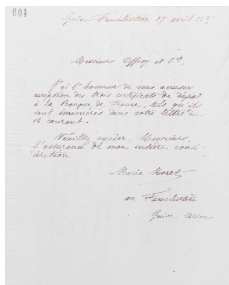 Guise Familistère 17 avril
Messieurs Offroy et Cie
J'ai l'honneur de vous accuser
réception des trois récépissés de dépôt
à la Banque de France, tels qu'ils
sont énumérés dans votre lettre du
16 courant.
Veuillez agréer, Messieurs,
l'assurance de mon entière consi-
dération.
Marie Moret
au Familistère
Guise Aisne